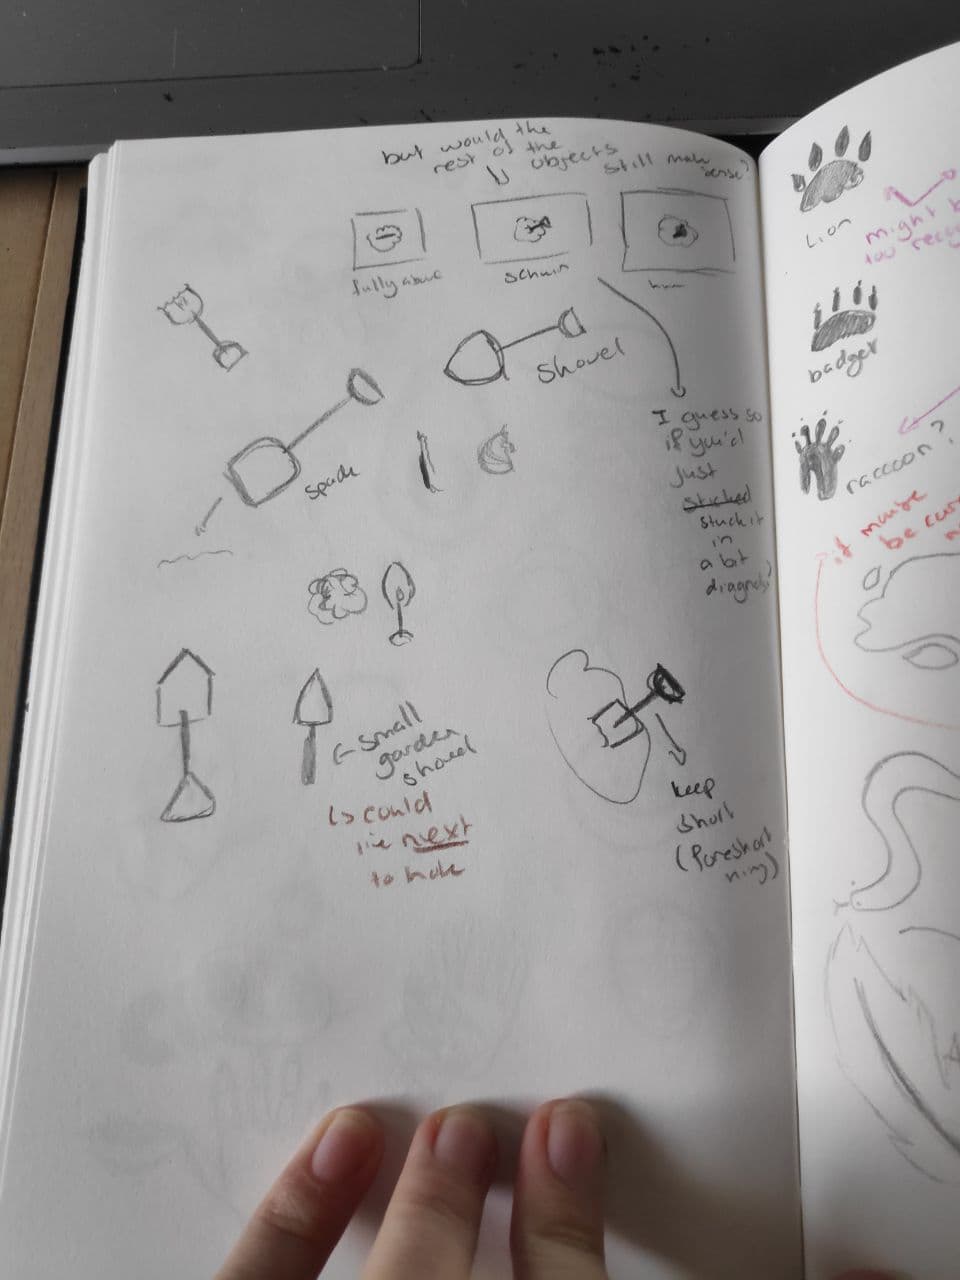 but would the
rest of the
objects
still make
sense?
fully above
schuin
Shovel
Spade
I guess so
if you'd
just
sticked
stuck it
in
a bit
small
garden
shovel
could
lie next
to hole
keep
short
(foreshort
ning)
Lion
might b
too rec
badger
raccoon?
if
be